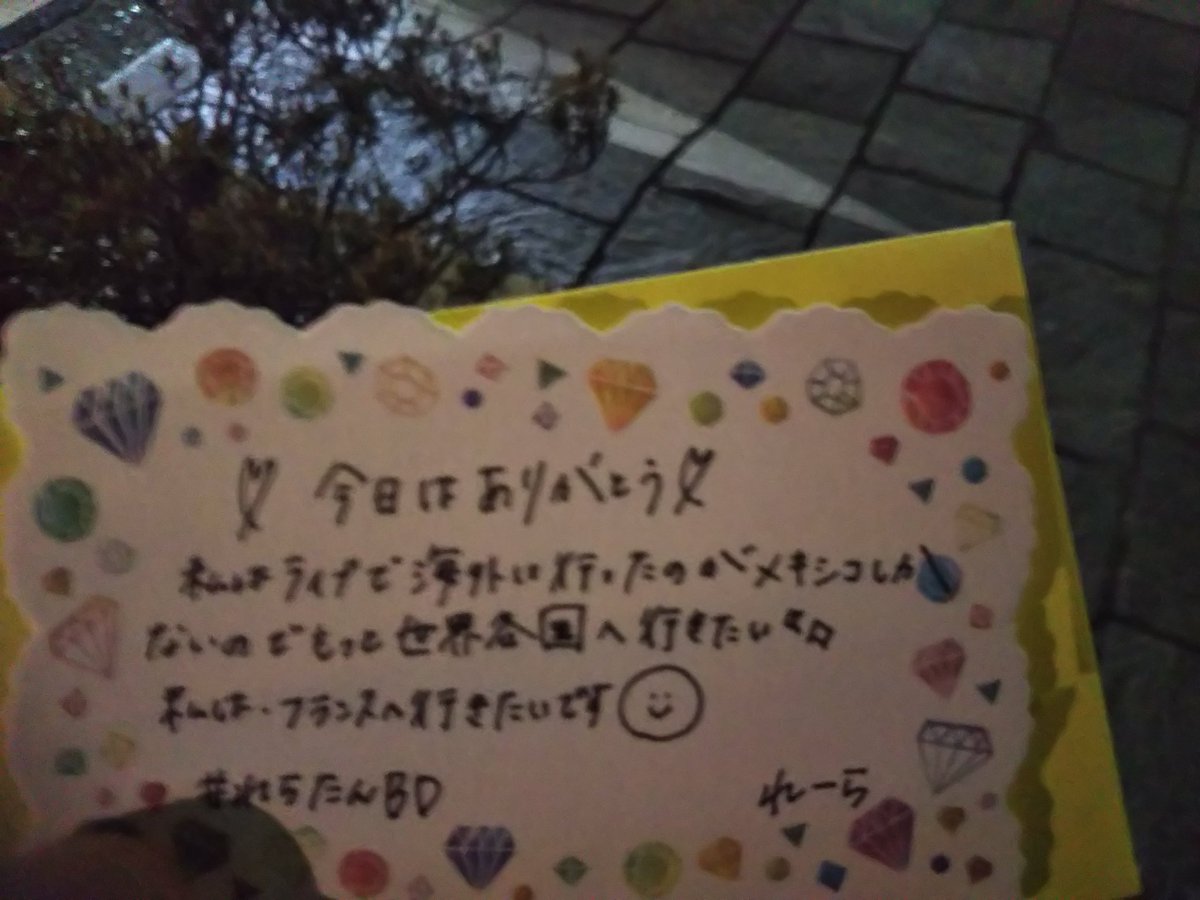 今日はありがとう
私はライブで海外に行ったのがメキシコしか
ないのでもっと世界各国へ行きたい
私は、フランスへ行きたいです
#れらたんBD
れーら